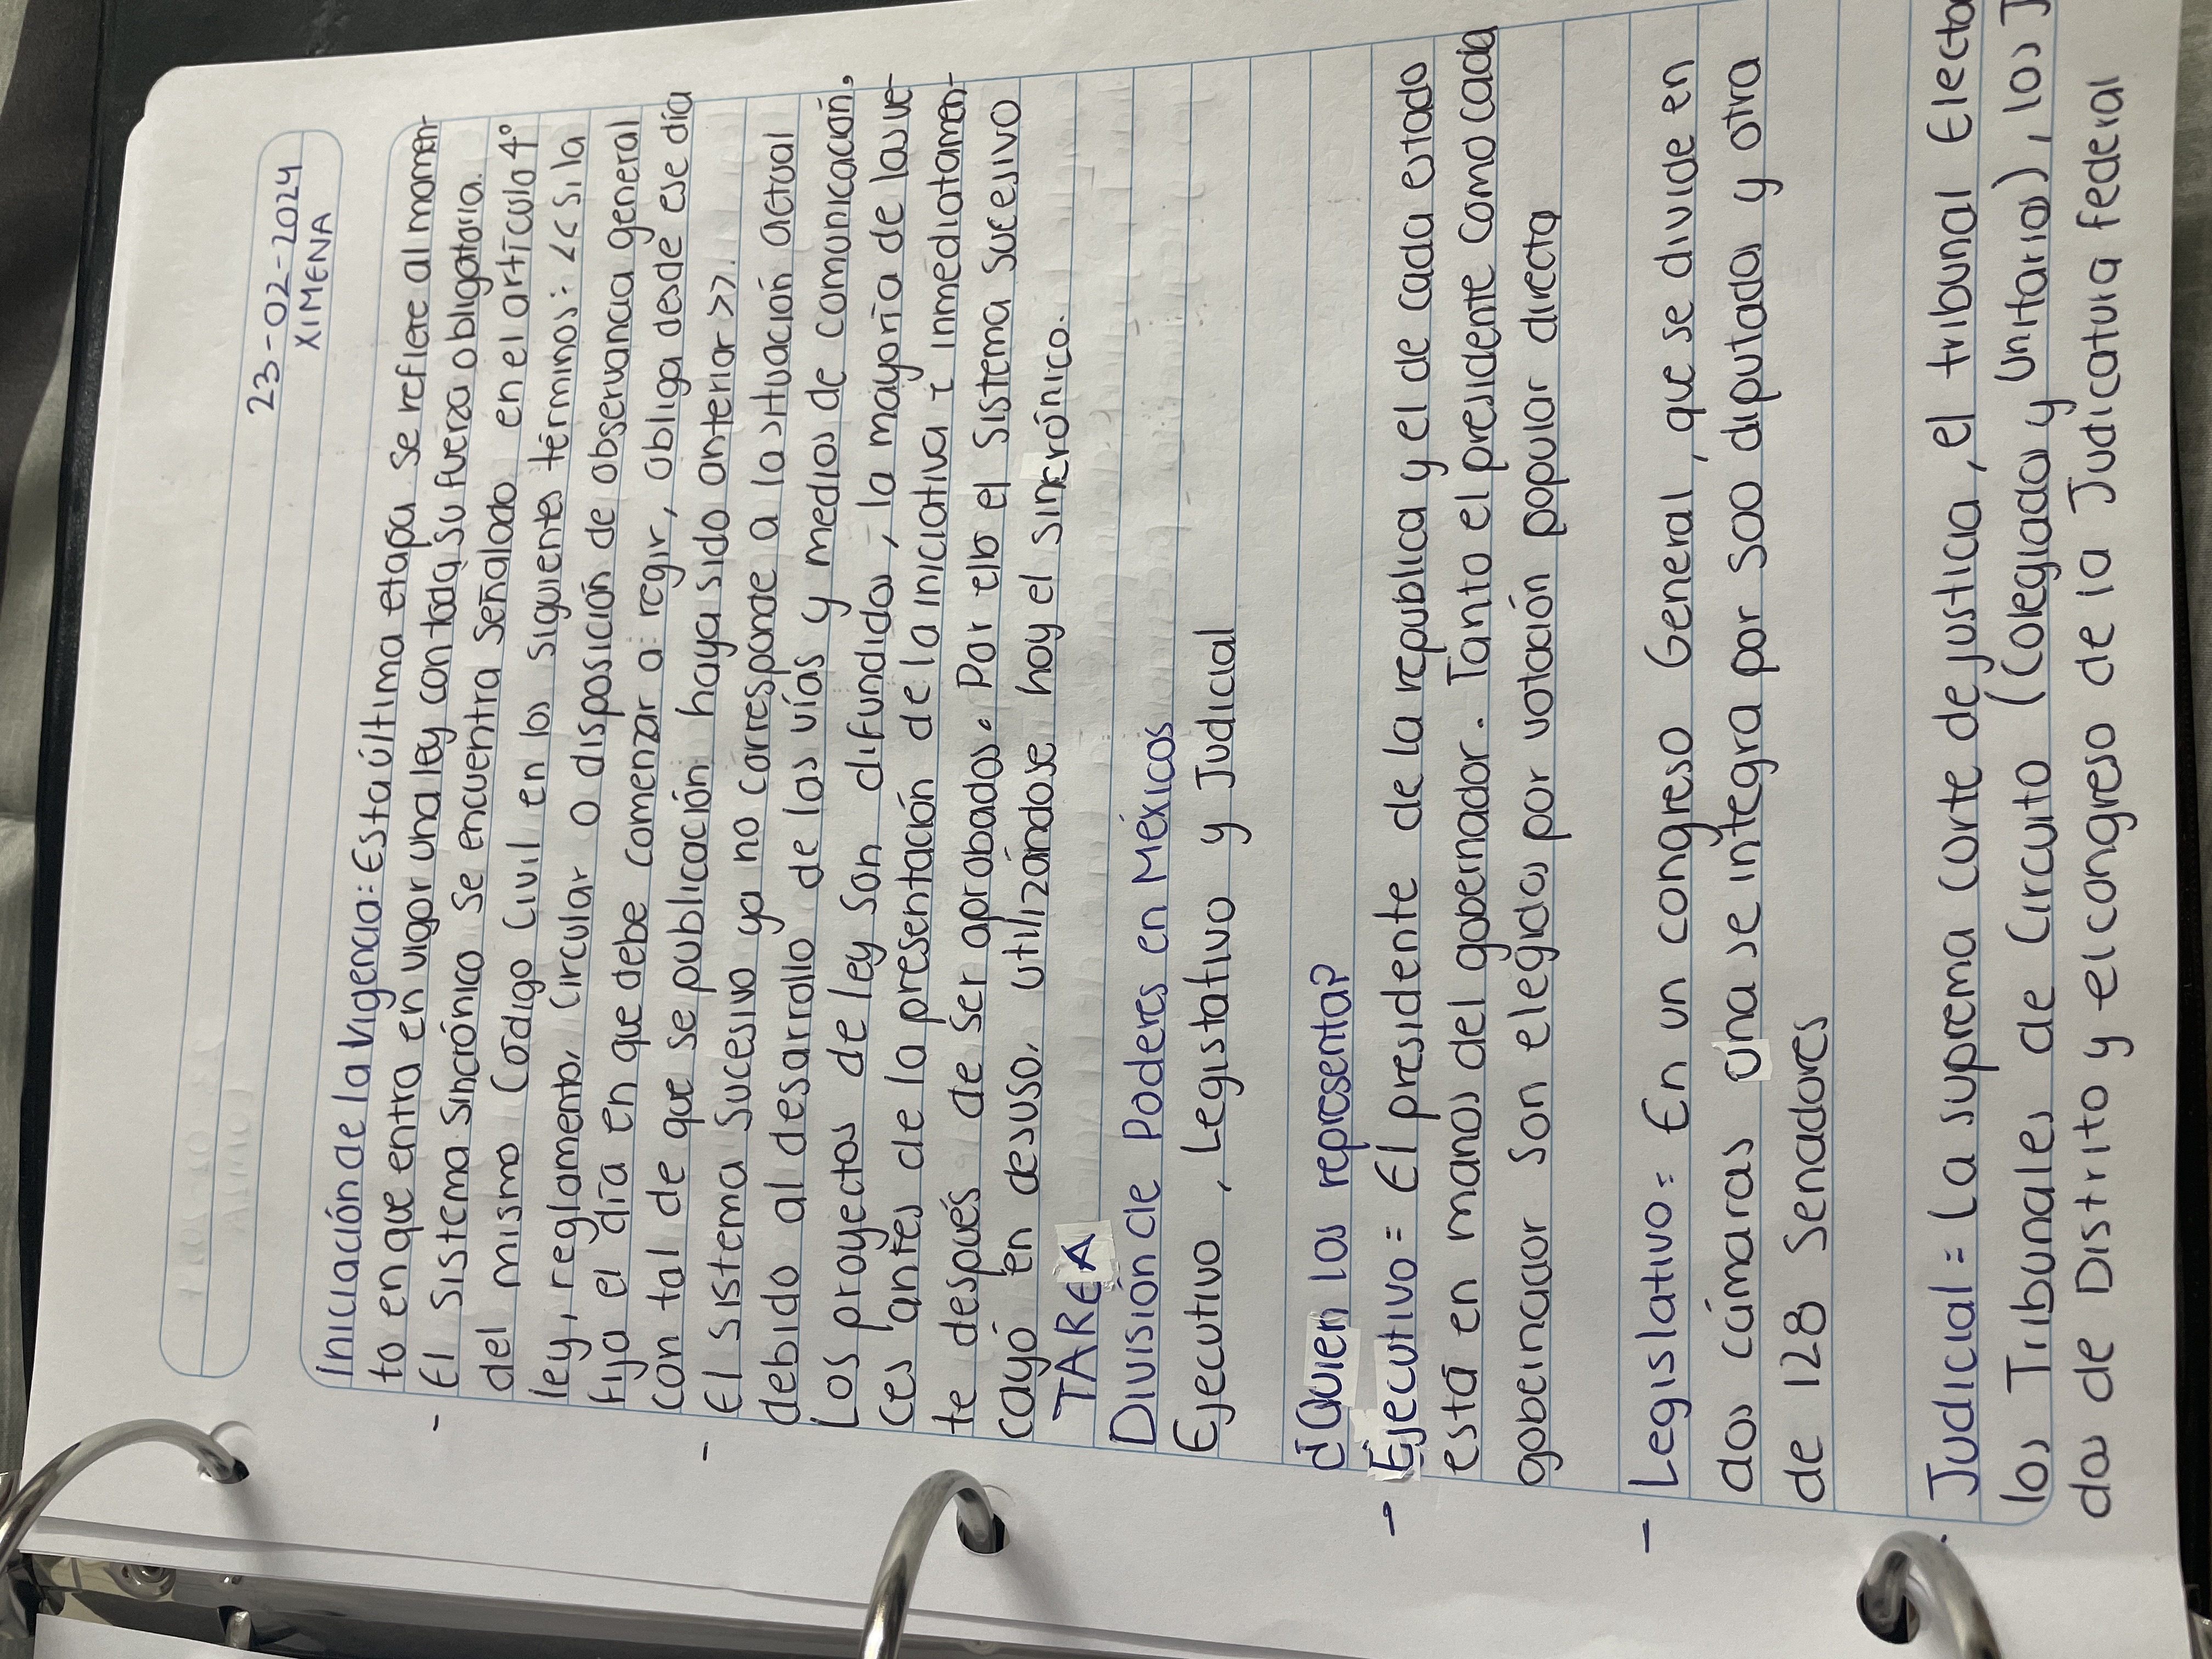 23-02-2024
XIMENA
Iniciación de la Vigencia: Esta última etapa se refiere al momen-
to en que entra en vigor una ley con toda su fuerza obligatoria.
- El sistema sincrónico se encuentra señalado en el artículo 4°
del mismo Código Civil en los siguientes términos: <<Si la
ley, reglamento, circular o disposición de observancia general
fija el día en que debe comenzar a regir, obliga desde ese día
con tal de que se publicación haya sido anterior>>.
- El sistema sucesivo ya no corresponde a la situación actual
debido al desarrollo de las vías y medios de comunicación,
Los proyectos de ley son difundidos, la mayoría de las ve-
ces antes de la presentación de la iniciativa e inmediatamen-
te después de ser aprobados. Por ello el sistema sucesivo
cayó en desuso, utilizándose hoy el sincrónico.
TAREA
División de Poderes en Méxicos
Ejecutivo, Legistativo y Judicial
¿Quien los representa?
- Ejecutivo = El presidente de la republica y el de cada estado
está en manos del gobernador. Tanto el presidente como cada
gobernador son elegidos por votación popular directa
- Legislativo = En un congreso General, que se divide en
dos cámaras una se integra por 500 diputados y otra
de 128 Senadores
Judicial = La suprema corte de justicia, el tribunal
los Tribunales de Circuito (Colegiados y Unitarios), los
dos de Distrito y el congreso de la Judicatura federal